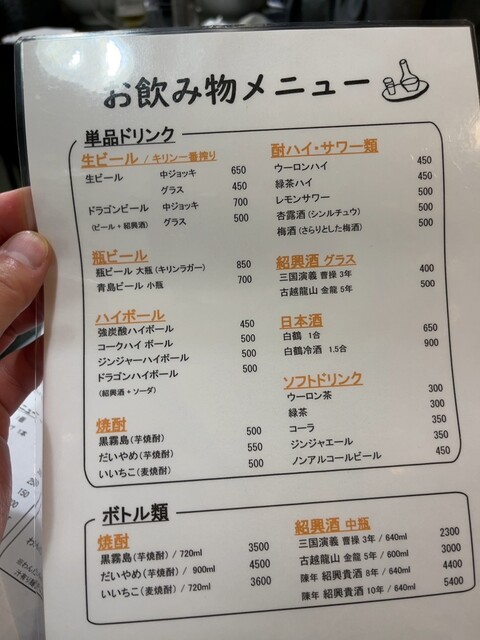 お飲み物メニュー
単品ドリンク
生ビール / キリン一番搾り
生ビール 中ジョッキ 650
グラス 450
ドラゴンビール 中ジョッキ 700
(ビール + 紹興酒) グラス 500
瓶ビール
瓶ビール 大瓶 (キリンラガー) 850
青島ビール 小瓶 700
ハイボール
強炭酸ハイボール 450
コークハイ ボール 500
ジンジャーハイボール 500
ドラゴンハイボール 500
(紹興酒 + ソーダ)
焼酎
黒霧島 (芋焼酎) 500
だいやめ (芋焼酎) 550
いいちこ (麦焼酎) 500
酎ハイ・サワー類
ウーロンハイ 450
緑茶ハイ 450
レモンサワー 500
杏露酒 (シンルチュウ) 500
梅酒 (さらりとした梅酒) 500
紹興酒 グラス
三国演義 曹操 3年 400
古越龍山 金龍 5年 500
日本酒
白鶴 1合 650
白鶴冷酒 1.5合 900
ソフトドリンク
ウーロン茶 300
緑茶 300
コーラ 350
ジンジャエール 350
ノンアルコールビール 450
ボトル類
焼酎
黒霧島 (芋焼酎) / 720ml 3500
だいやめ (芋焼酎) / 900ml 4500
いいちこ (麦焼酎) / 720ml 3600
紹興酒 中瓶
三国演義 曹操 3年 / 640ml 2300
古越龍山 金龍 5年 / 600ml 3000
陳年 紹興貴酒 8年 / 640ml 4400
陳年 紹興貴酒 10年 / 640ml 5400